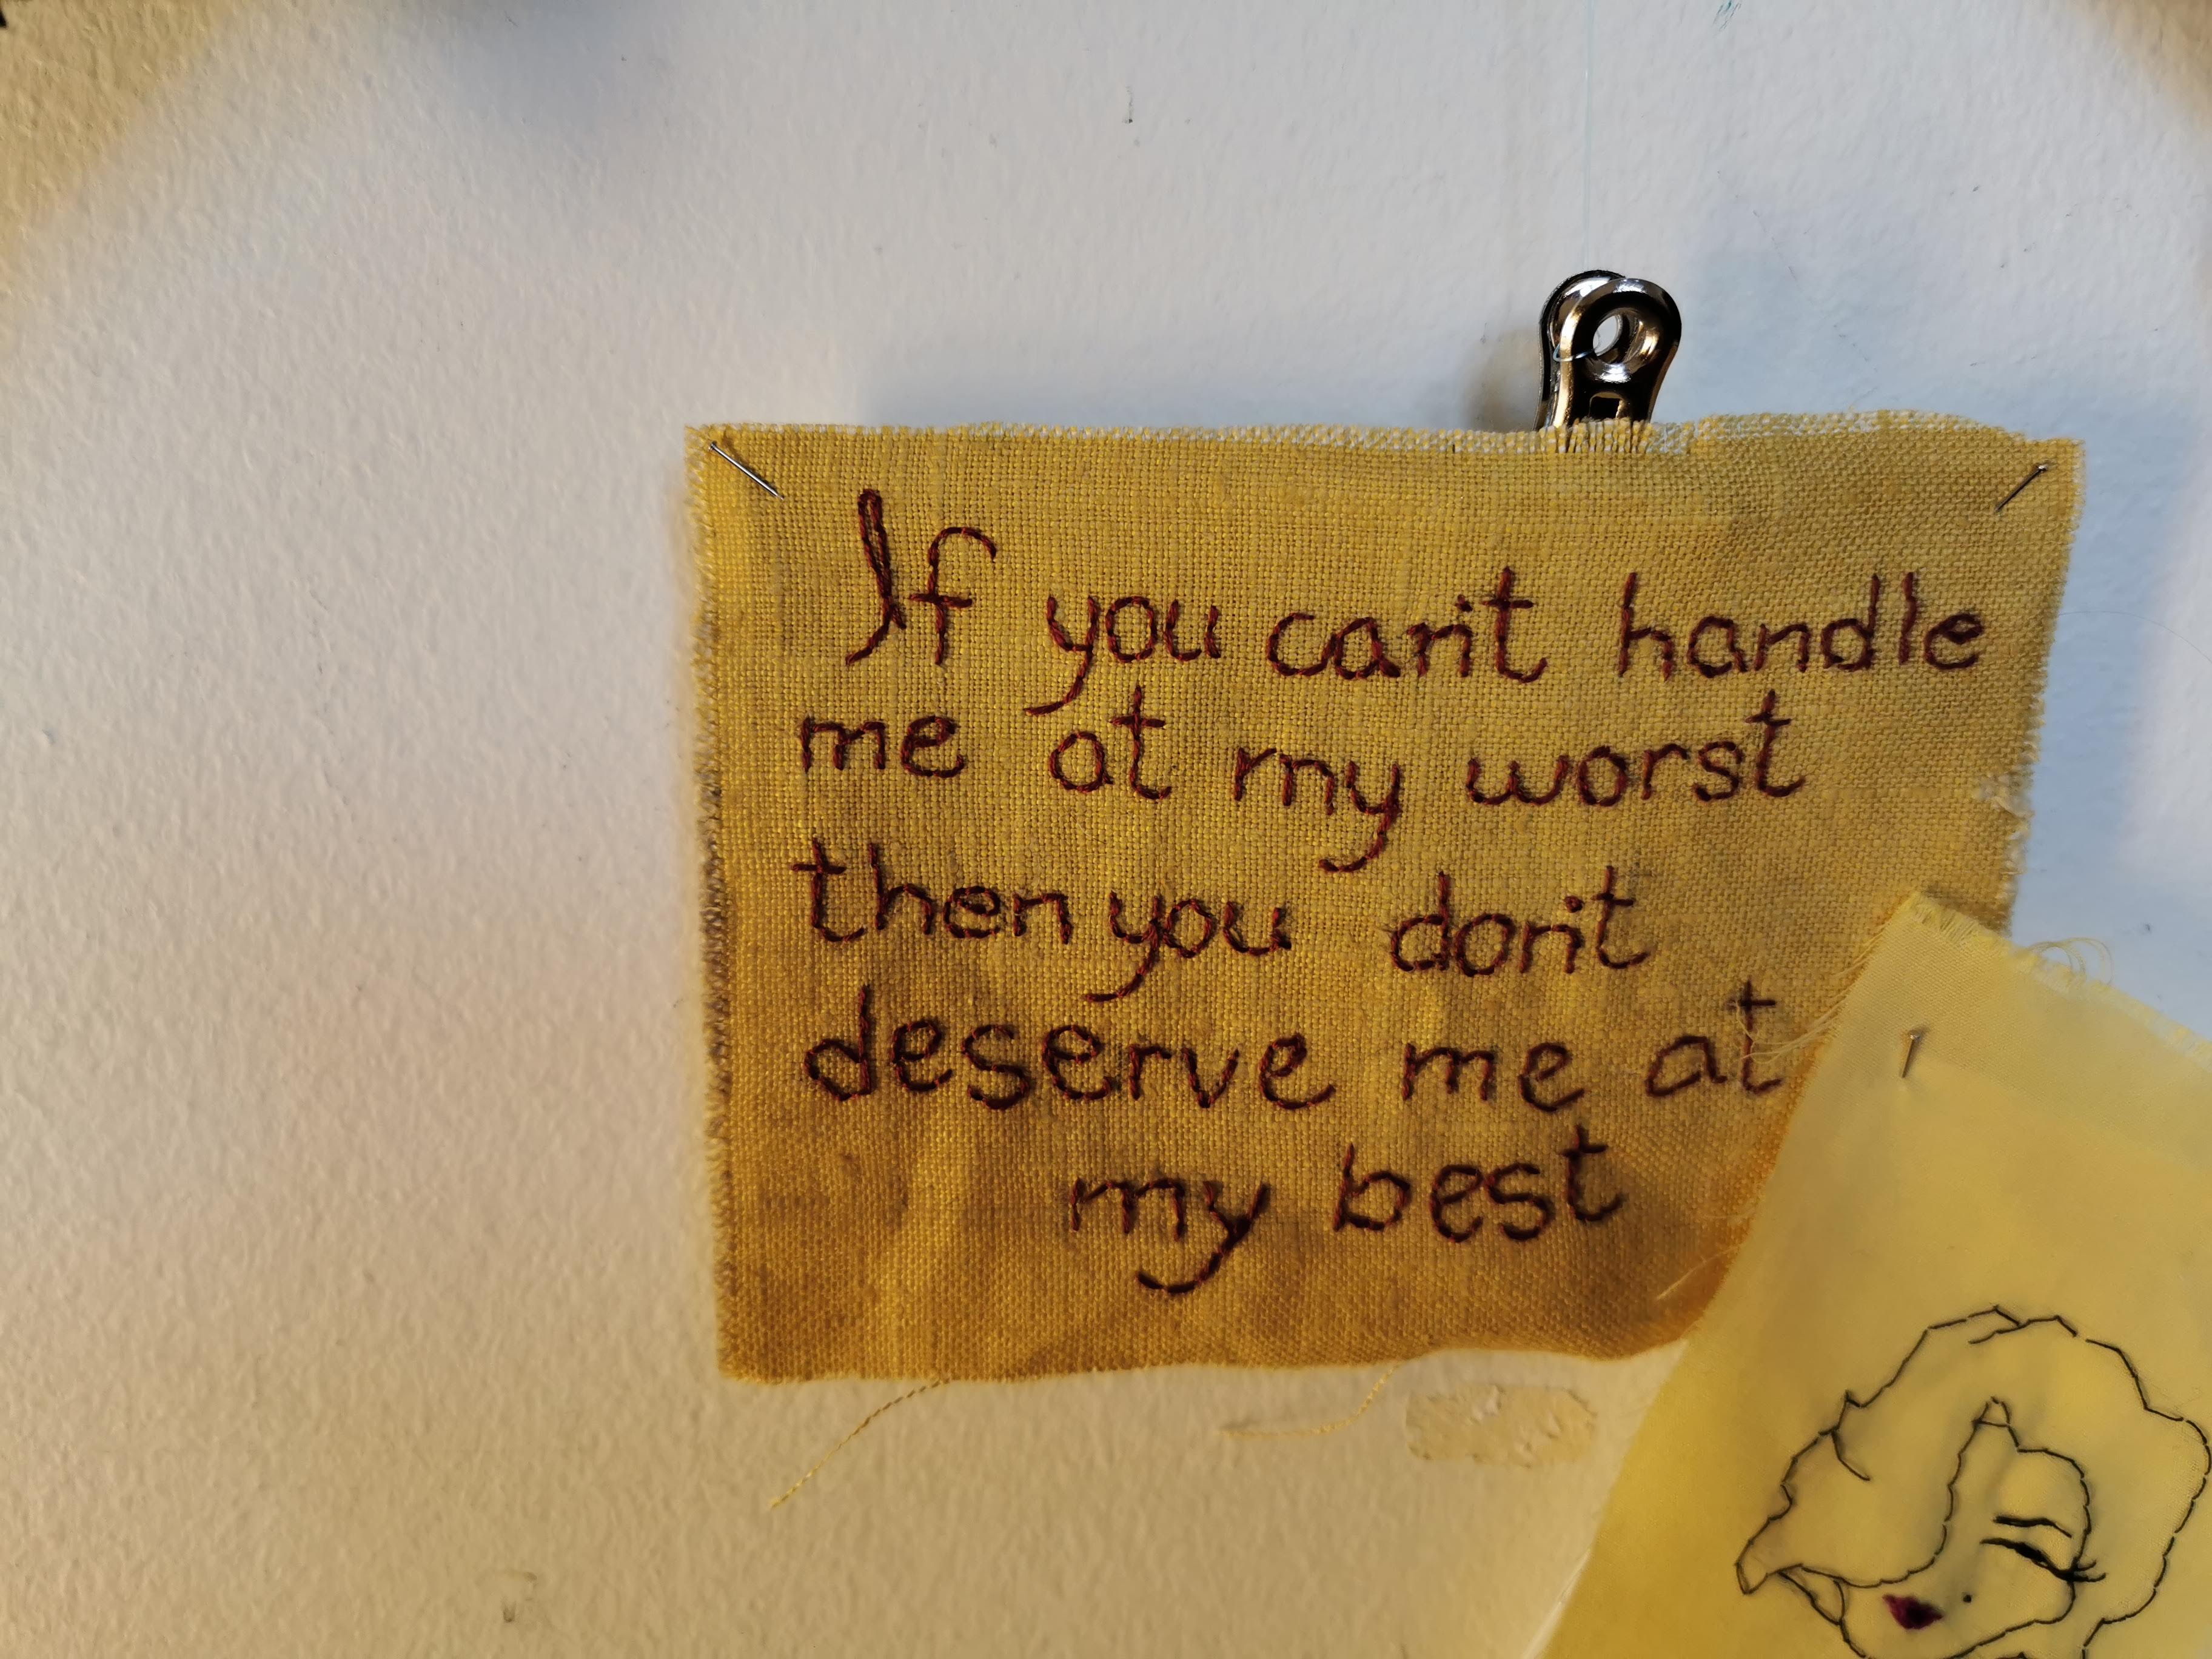 If you can't handle
me at my worst
then you don't
deserve me at
my best